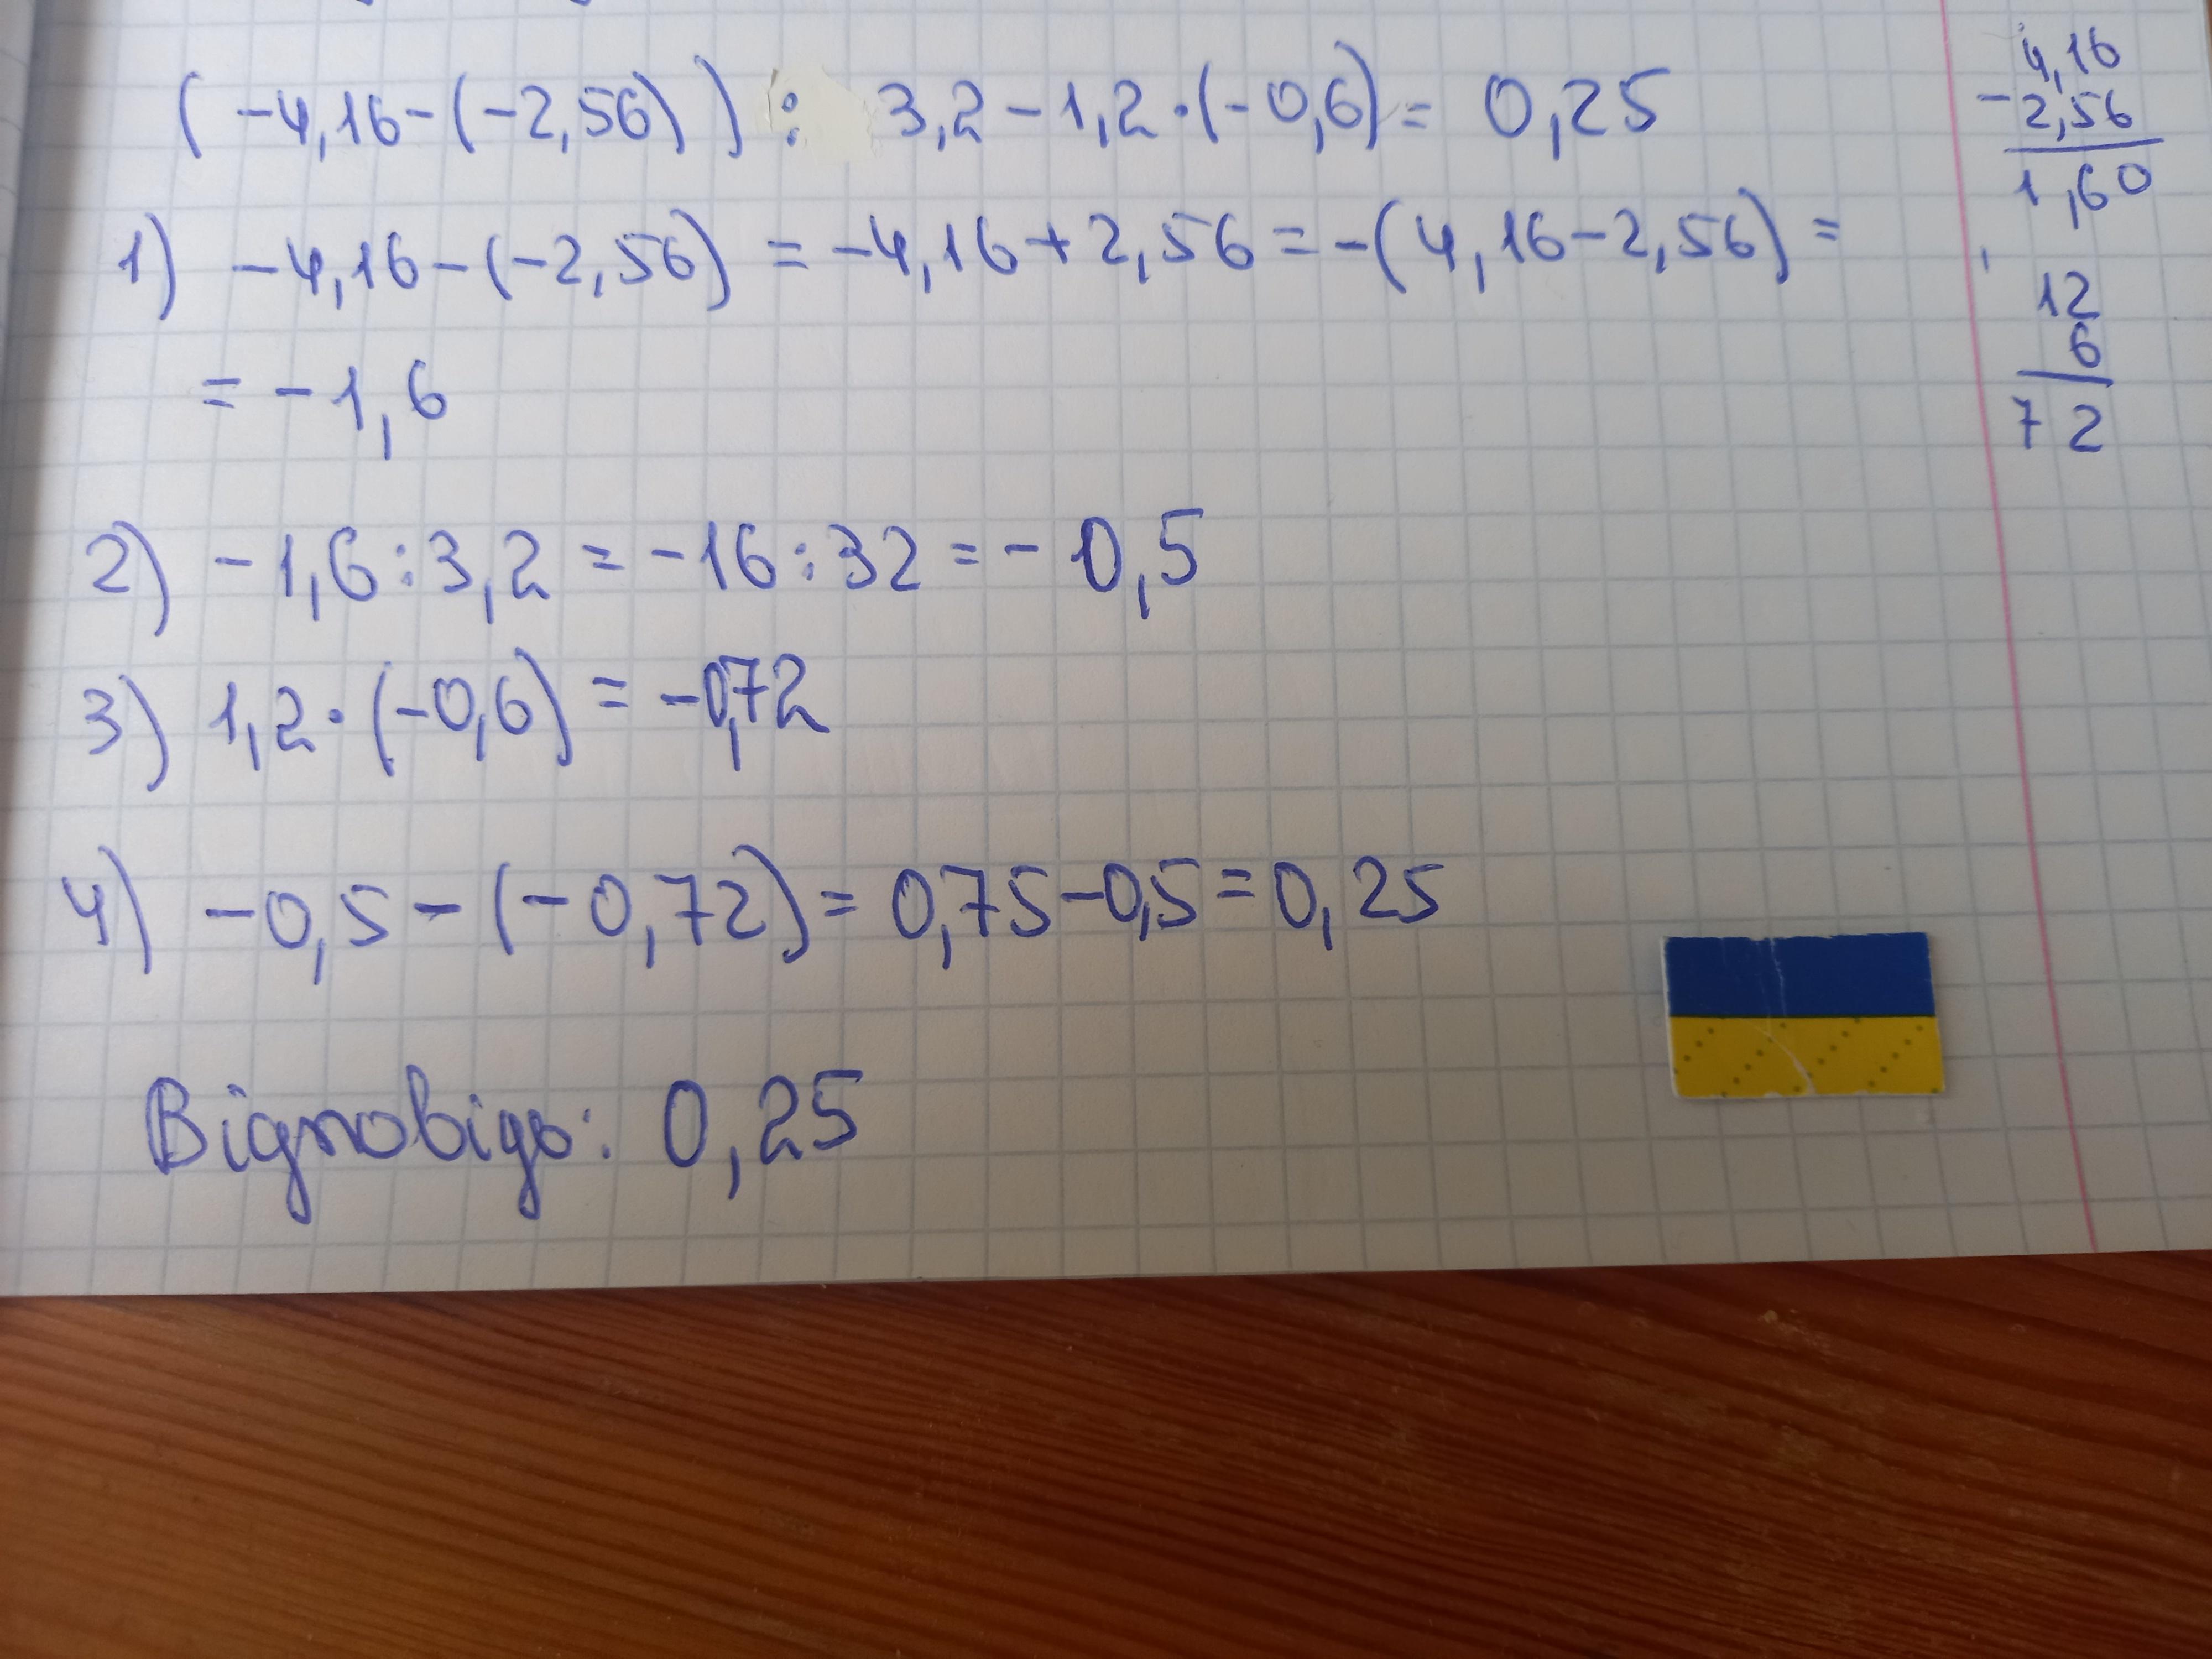 (-4,16-(-2,56)): 3,2-1,2·(-0,6)= 0,25
1) -4,16-(-2,56) = -4,16+2,56=-(4,16-2,56)=
= -1,6
2) -1,6:3,2 = -16:32 = -0,5
3) 1,2·(-0,6) = -0,72
4) -0,5-(-0,72)= 0,75-0,5=0,25
Відповідь: 0,25
4,16
-2,56
1,60
12
6
72